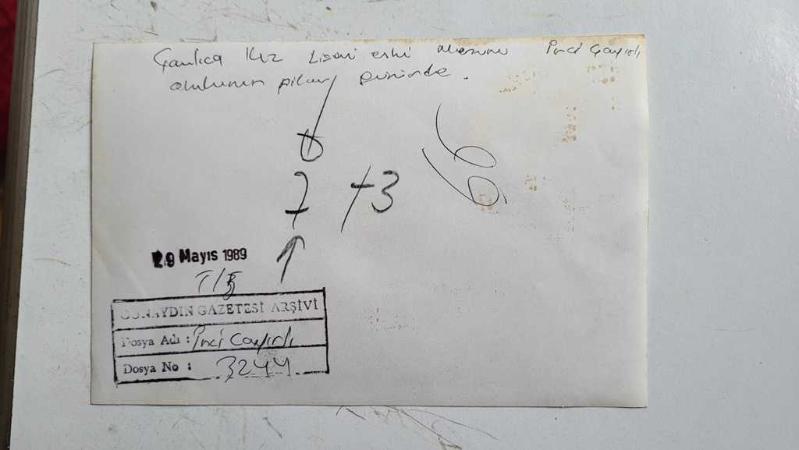 Çamlıca Kız Lisesi eski mezunu İnci Çayırlı
okulunun pilav gününde.
7 +3
29 Mayıs 1989
GÜNAYDIN GAZETESİ ARŞİVİ
Dosya Adı : İnci Çayırlı
Dosya No : 3244